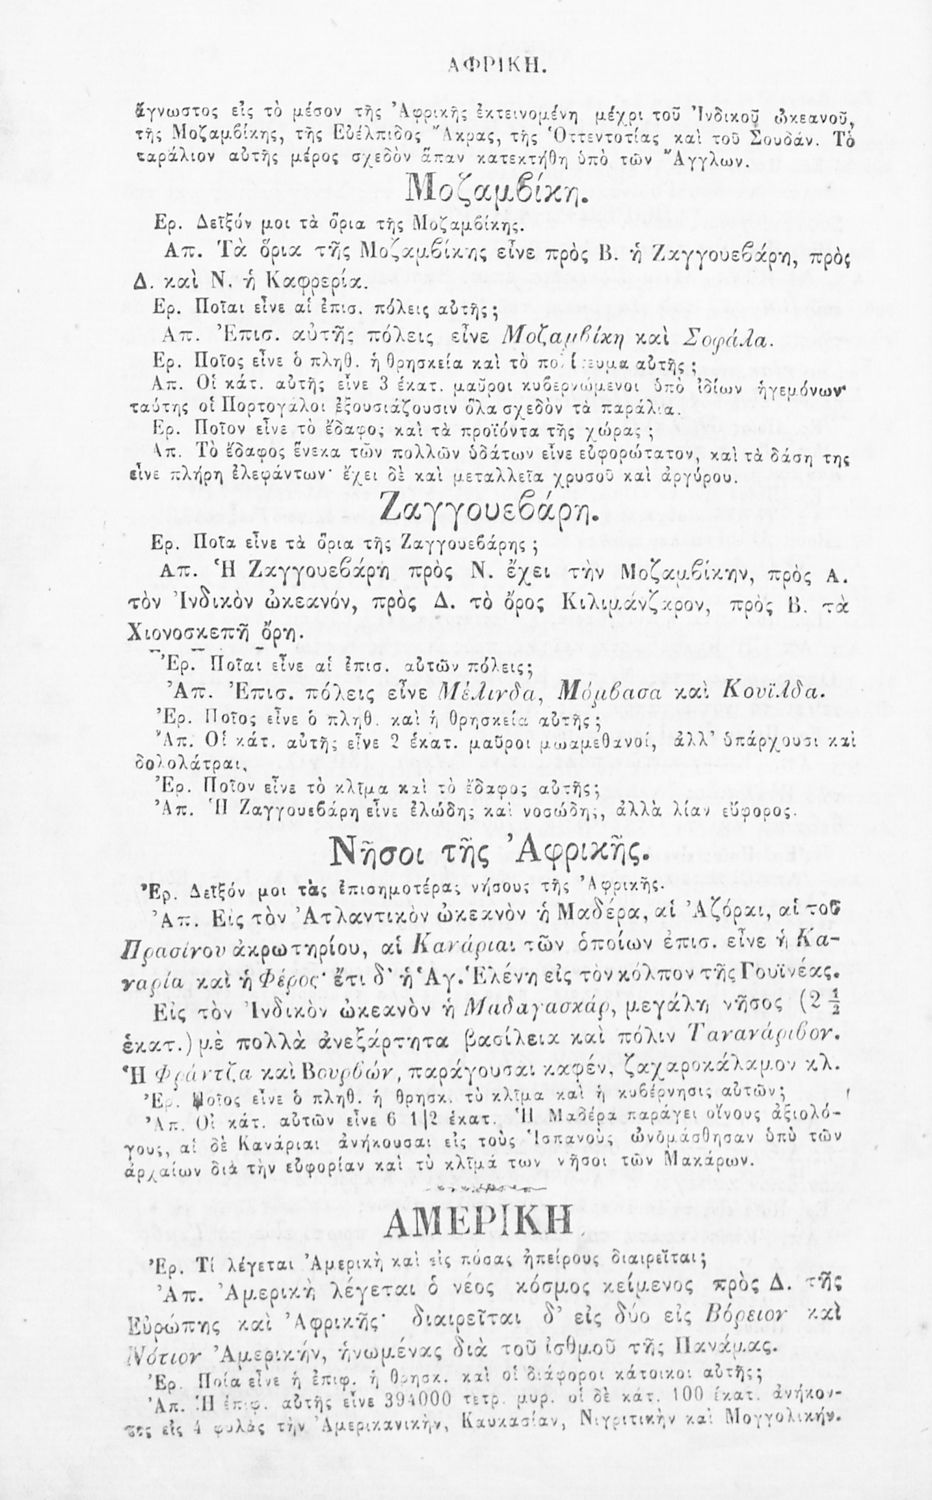 ΑΦΡΙΚΗ.
ἄγνωστος εἰς τὸ μέσον τῆς Ἀφρικῆς ἐκτεινομένη μέχρι τοῦ Ἰνδικοῦ ὠκεανοῦ,
τῆς Μοζαμβίκης, τῆς Εὐέλπιδος Ἄκρας, τῆς Ὀττεντοτίας καὶ τοῦ Σουδάν. Τὸ
παράλιον αὐτῆς μέρος σχεδὸν ἅπαν κατεκτήθη ὑπὸ τῶν Ἄγγλων.
Μοζαμβίκη.
Ερ. Δεῖξόν μοι τὰ ὅρια τῆς Μοζαμβίκης.
Απ. Τὰ ὅρια τῆς Μοζαμβίκης εἶνε πρὸς Β. ἡ Ζαγγουεβάρη, πρὸς
Δ. καὶ Ν. ἡ Καφρερία.
Ερ. Ποῖαι εἶνε αἱ ἐπισ. πόλεις αὐτῆς;
Απ. Ἐπισ. αὐτῆς πόλεις εἶνε Μοζαμβίκη καὶ Σοφάλα.
Ερ. Ποῖος εἶνε ὁ πληθ. ἡ θρησκεία καὶ τὸ πολίτευμα αὐτῆς;
Απ. Οἱ κάτ. αὐτῆς εἶνε 3 ἑκατ. μαῦροι κυβερνώμενοι ὑπὸ ἰδίων ἡγεμόνων·
ταύτης οἱ Πορτογάλοι ἐξουσιάζουσιν ὅλα σχεδὸν τὰ παράλια.
Ερ. Ποῖον εἶνε τὸ ἔδαφος καὶ τὰ προϊόντα τῆς χώρας;
Απ. Τὸ ἔδαφος ἕνεκα τῶν πολλῶν ὑδάτων εἶνε εὐφορώτατον, καὶ τὰ δάση της
εἶνε πλήρη ἐλεφάντων· ἔχει δὲ καὶ μεταλλεῖα χρυσοῦ καὶ ἀργύρου.
Ζαγγουεβάρη.
Ερ. Ποῖα εἶνε τὰ ὅρια τῆς Ζαγγουεβάρης;
Απ. Ἡ Ζαγγουεβάρη πρὸς Ν. ἔχει τὴν Μοζαμβίκην, πρὸς Α.
τὸν Ἰνδικὸν ὠκεανόν, πρὸς Δ. τὸ ὄρος Κιλιμάνζαρον, πρὸς Β. τὰ
Χιονοσκεπῆ ὄρη.
Ἐρ. Ποῖαι εἶνε αἱ ἐπισ. αὐτῶν πόλεις;
Ἀπ. Ἐπισ. πόλεις εἶνε Μέλινδα, Μόμβασα καὶ Κουΐλδα.
Ἐρ. Ποῖος εἶνε ὁ πληθ. καὶ ἡ θρησκεία αὐτῆς;
Ἀπ. Οἱ κάτ. αὐτῆς εἶνε 2 ἑκατ. μαῦροι μωαμεθανοί, ἀλλ' ὑπάρχουσι καὶ
δολολάτραι.
Ἐρ. Ποῖον εἶνε τὸ κλῖμα καὶ τὸ ἔδαφος αὐτῆς;
Ἀπ. Ἡ Ζαγγουεβάρη εἶνε ἑλώδης καὶ νοσώδης, ἀλλὰ λίαν εὔφορος.
Νῆσοι τῆς Ἀφρικῆς.
Ἐρ. Δεῖξόν μοι τὰς ἐπισημοτέρας νήσους τῆς Ἀφρικῆς.
Ἀπ. Εἰς τὸν Ἀτλαντικὸν ὠκεανὸν ἡ Μαδέρα, αἱ Ἀζόραι, αἱ τοῦ
Πρασίνου ἀκρωτηρίου, αἱ Κανάριαι τῶν ὁποίων ἐπισ. εἶνε ἡ Κα-
ναρία καὶ ἡ Φέρος· ἔτι δ' ἡ Ἁγ. Ἑλένη εἰς τὸν κόλπον τῆς Γουϊνέας.
Εἰς τὸν Ἰνδικὸν ὠκεανὸν ἡ Μαδαγασκάρ, μεγάλη νῆσος (2 ½
ἑκατ.) μὲ πολλὰ ἀνεξάρτητα βασίλεια καὶ πόλιν Τανανάριβον.
Ἡ Φράντζα καὶ Βουρβών, παράγουσαι καφέν, ζαχαροκάλαμον κλ.
Ἐρ. Ποῖος εἶνε ὁ πληθ. ἡ θρησκ. τὸ κλῖμα καὶ ἡ κυβέρνησις αὐτῶν;
Ἀπ. Οἱ κάτ. αὐτῶν εἶνε 6 1|2 ἑκατ. Ἡ Μαδέρα παράγει οἴνους ἀξιολό-
γους, αἱ δὲ Κανάριαι ἀνήκουσαι εἰς τοὺς Ἱσπανοὺς ὠνομάσθησαν ὑπὸ τῶν
ἀρχαίων διὰ τὴν εὐφορίαν καὶ τὸ κλῖμά των νῆσοι τῶν Μακάρων.
ΑΜΕΡΙΚΗ
Ἐρ. Τί λέγεται Ἀμερικὴ καὶ εἰς πόσας ἠπείρους διαιρεῖται;
Ἀπ. Ἀμερικὴ λέγεται ὁ νέος κόσμος κείμενος πρὸς Δ. τῆς
Εὐρώπης καὶ Ἀφρικῆς· διαιρεῖται δ' εἰς δύο εἰς Βόρειον καὶ
Νότιον Ἀμερικήν, ἡνωμένας διὰ τοῦ ἰσθμοῦ τῆς Πανάμας.
Ἐρ. Ποία εἶνε ἡ ἐπιφ. ἡ θρησκ. καὶ οἱ διάφοροι κάτοικοι αὐτῆς;
Ἀπ. Ἡ ἐπιφ. αὐτῆς εἶνε 394000 τετρ. μυρ. οἱ δὲ κάτ. 100 ἑκατ. ἀνήκον-
τες εἰς 4 φυλὰς τὴν Ἀμερικανικὴν, Καυκασίαν, Νιγριτικὴν καὶ Μογγολικήν.